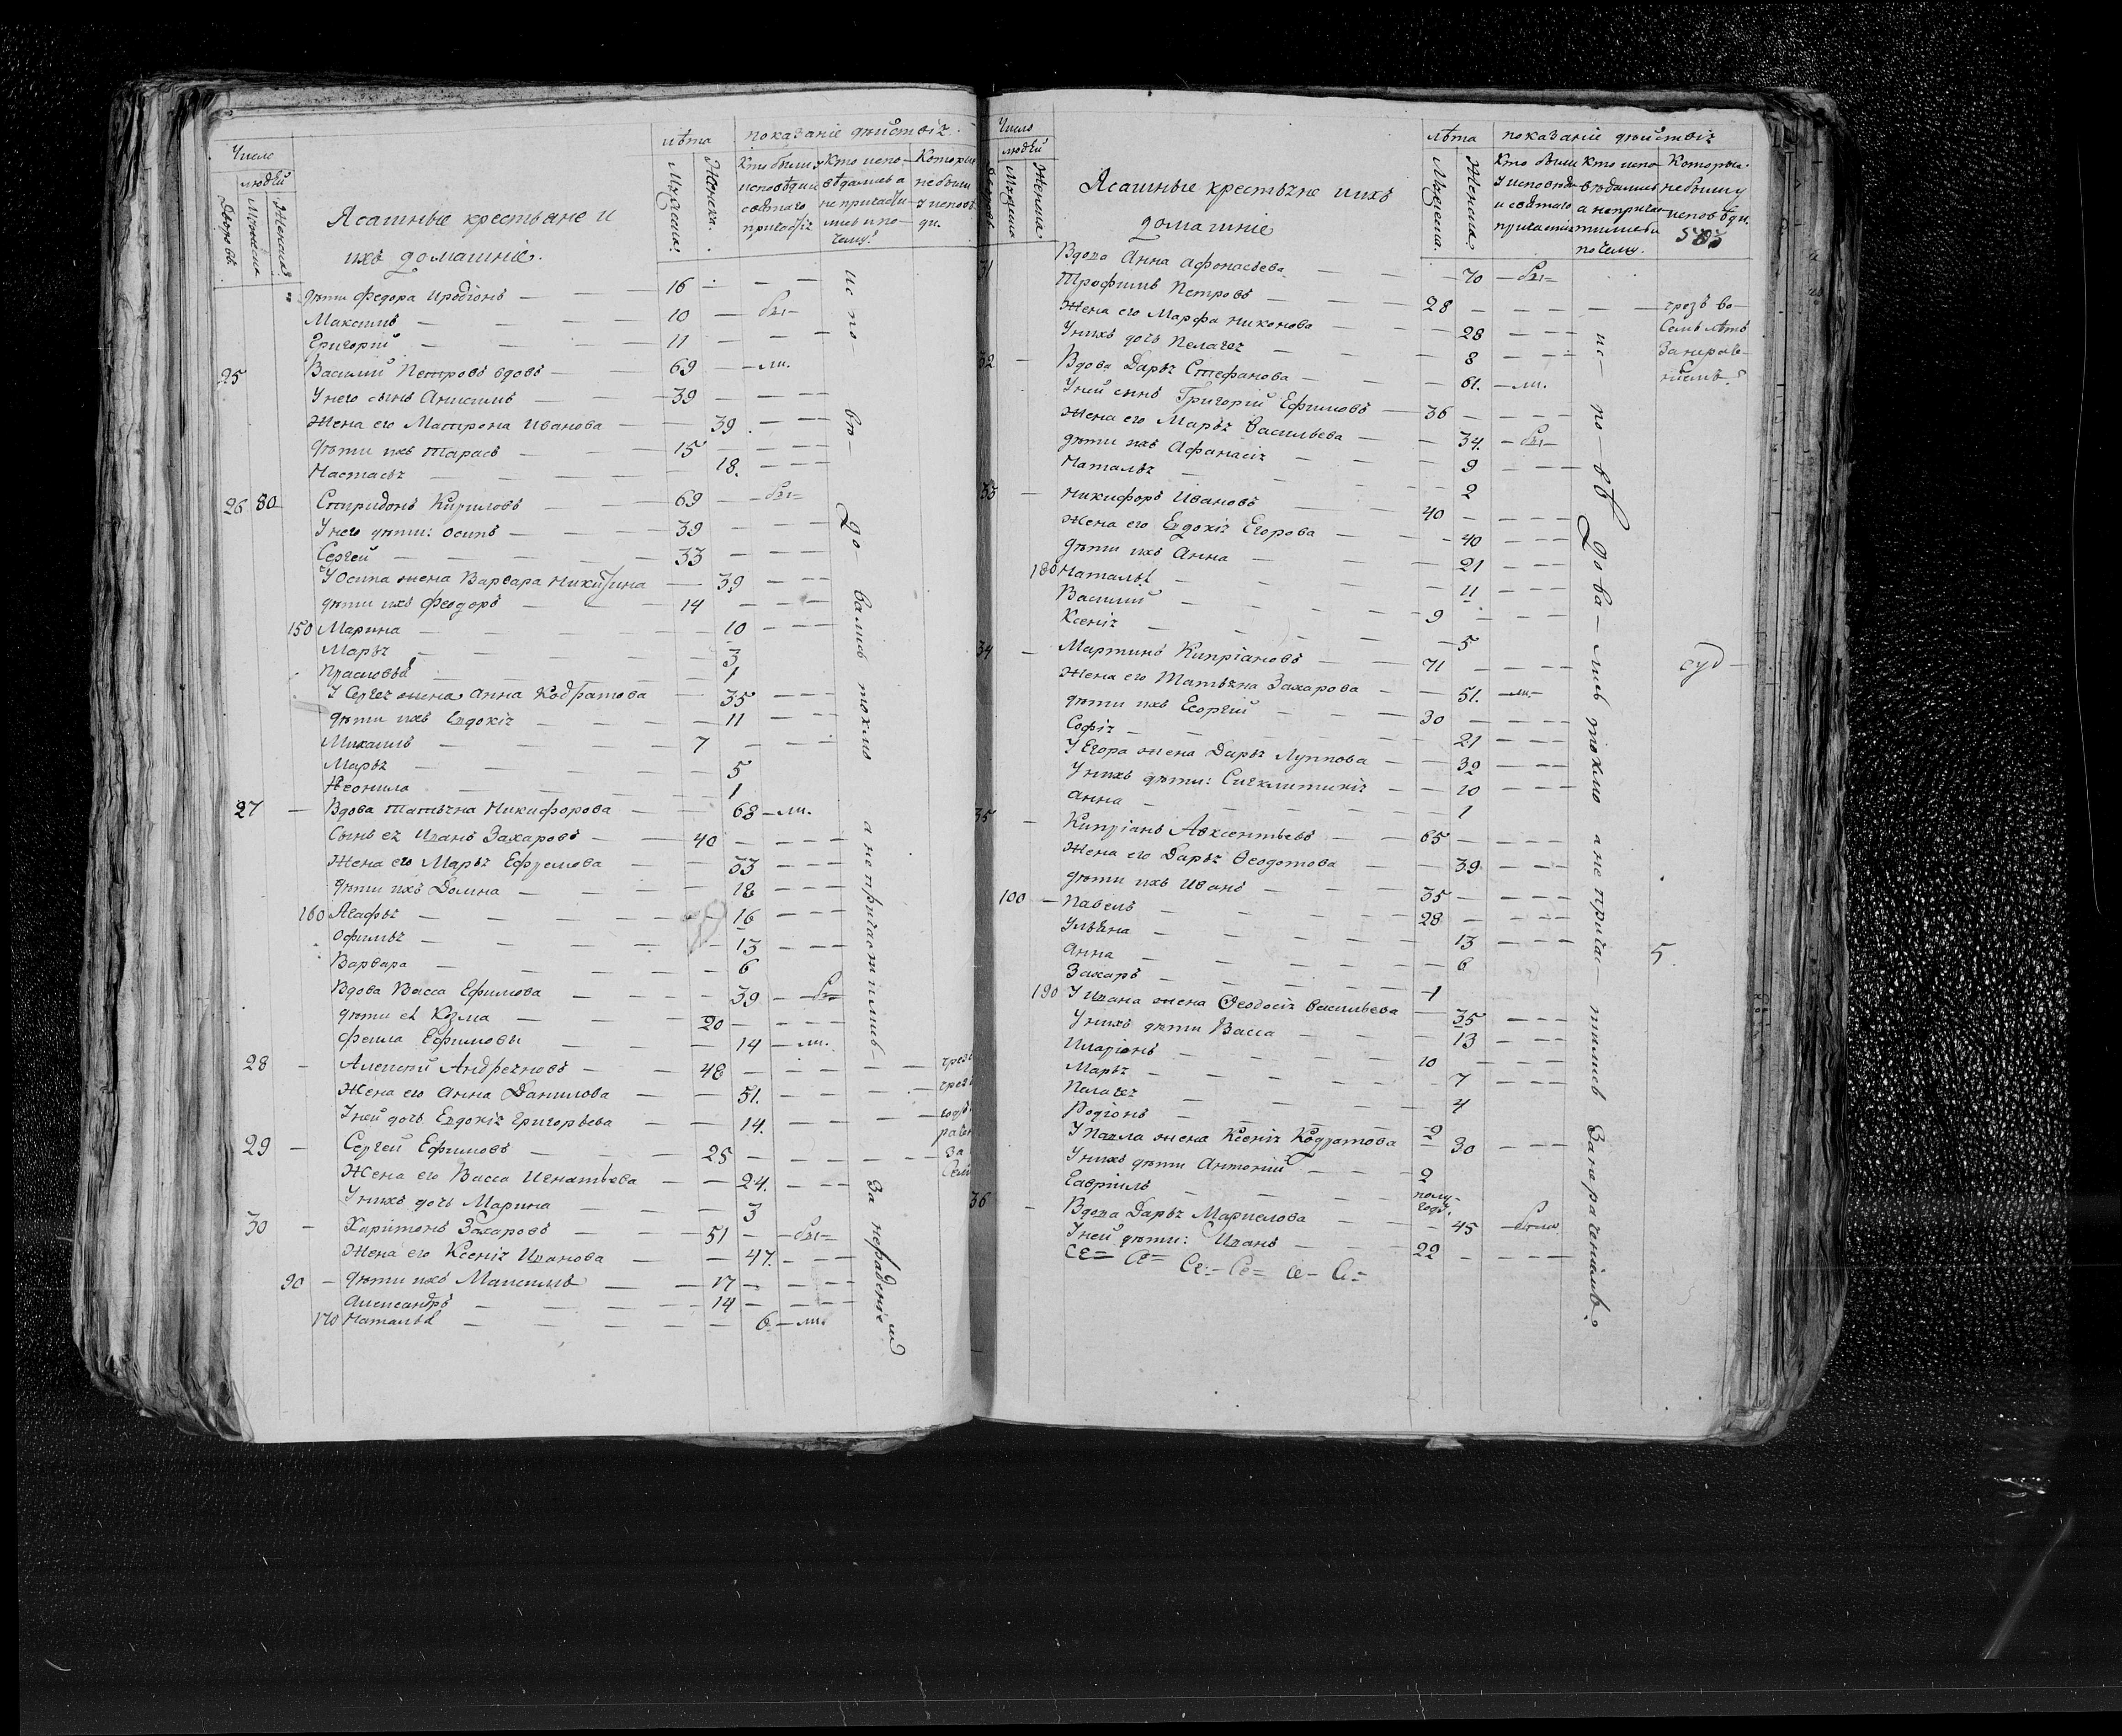 Число
людей
Дворовъ
Мужеска
Женска
Ясашные крестьяне и
ихъ домашніе.
лѣта
Мужеска.
Женска.
показаніе дѣйствія.
Кто были у исповѣди и святаго причастія
Кто исповѣдались а не причастились и по чему.
Которые не были у исповѣди.
дѣти Федора Иродіонъ — 16 —
Максимъ — 10 — бы
Григорій — 11 —
25 Василий Петровъ вдовъ — 69 — ли.
У него сынъ Анисимъ — 39 —
Жена его Матрона Иванова — 39 —
дѣти ихъ Тарасъ — 15 —
Настасья — 18. —
26 80 Спиридонъ Кириловъ — 69 — бы
У него дѣти: Осипъ — 39 —
Сергей — 33 —
У Осипа жена Варвара Никитина — 39 —
дѣти ихъ Феодоръ — 14 —
150 Марина — 10 —
Марья — 3
Прасковья — 1
У Сергея жена Анна Кодратова — 35 —
дѣти ихъ Евдокія — 11 —
Михаилъ — 7 —
Марья — 5
Неонила — 1
27 — Вдова Татьяна Никифорова — 68 — ли.
Сынъ ея Иванъ Захаровъ — 40 —
Жена его Марья Ефремова — 33 —
дѣти ихъ Домна — 18 —
160 Агафья — 16 —
Офимья — 13 —
Варвара — 6
Вдова Васса Ефимова — 39 — бы
дѣти ея Козма — 20 —
Фекла Ефимовы — 14 — ли.
28 — Алексей Андреяновъ — 48 —
Жена его Анна Данилова — 51. —
У ней дочь Евдокія Григорьева — 14. —
29 — Сергей Ефимовъ — 25 —
Жена его Васса Игнатьева — 24. —
У нихъ дочь Марина — 3
30 — Харитонъ Захаровъ — 51 — бы
Жена его Ксенія Иванова — 47. —
90 — дѣти ихъ Максимъ — 17 —
Александръ — 14 —
170 Наталья — 6 — ли
ис по- вѣ- до вались токмо а не причастились за нерадѣніемъ
Число
людей
Дворовъ
Мужеска
Женска
Ясашные крестьяне ихъ
домашніе
лѣта
Мужеска.
Женска
показаніе дѣйствія
Кто были у исповѣди и святаго причастія
Кто исповѣдались а не причастились и по чему.
Которые не были у исповѣди.
31 Вдова Анна Афонасьева — 70 — бы
Трофимъ Петровъ — 28 — чрезъ во-
Жена его Марфа Никонова — 28 — семь лѣтъ
У нихъ дочь Пелагея — 8 — за нераде-
32 — Вдова Дарья Стефанова — 61. — ли. ніемъ.
У ней сынъ Григорий Ефимовъ — 36 —
Жена его Марья Васильева — 34. — бы
дѣти ихъ Афанасія — 9 —
Наталья — 2
33 — Никифоръ Ивановъ — 40 —
Жена его Евдокія Егорова — 40 —
дѣти ихъ Анна — 21 —
180 Наталья — 11 —
Василий — 9 —
Ксенія — 5
34 — Мартинъ Кипріановъ — 71 —
Жена его Татьяна Захарова — 51. — ли.
дѣти ихъ Георгий — 30 —
Софія — 21 —
У Егора жена Дарья Луппова — 32 —
У нихъ дѣти: Сигклитикія — 10 —
Анна — 1
35 — Кипріанъ Авксентьевъ — 65 —
Жена его Дарья Ѳеодотова — 39 —
дѣти ихъ Иванъ — 35 —
100 — Павелъ — 28 —
Ульяна — 13 —
Анна — 6
Захаръ — 1
190 У Ивана жена Ѳеодосія Васильева — 35 —
У нихъ дѣти Васса — 13 —
Иларіонъ — 10 —
Марья — 7 —
Пелагея — 4
Родіонъ — 2
У Павла жена Ксенія Кодратова — 30 —
У нихъ дѣти Антоний — 2
Гавріилъ — полу-годъ.
36 — Вдова Дарья Маркелова — 45 —
У ней дѣти: Иванъ — 22 —
ис- по- вѣ дова- лись токмо а не прича- тились за нераченіемъ.
суд
5